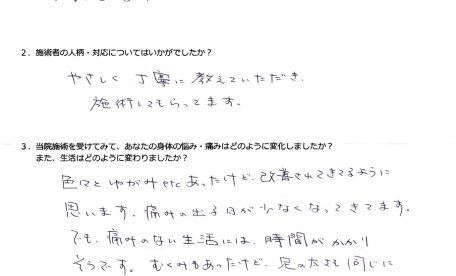 2．施術者の人柄・対応についてはいかがでしたか？
やさしく 丁寧に 教えていただき、
施術してもらってます。
3．当院施術を受けてみて、あなたの身体の悩み・痛みはどのように変化しましたか？
また、生活はどのように変わりましたか？
色々とゆがみetcあったけど、改善されてきてるように
思います。痛みの出る日が少なくなってきてます。
でも、痛みのない生活には、時間がかかり
そうです。むくみもあったけど、足の太さも同じに